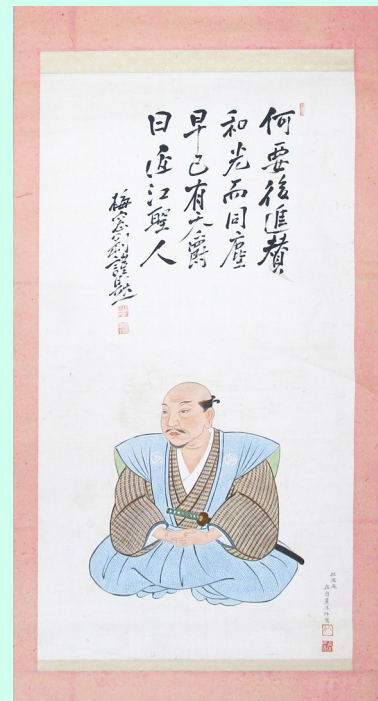 何要後進賛
和光而同塵
早已有天爵
曰近江聖人
梅窓剣謹題